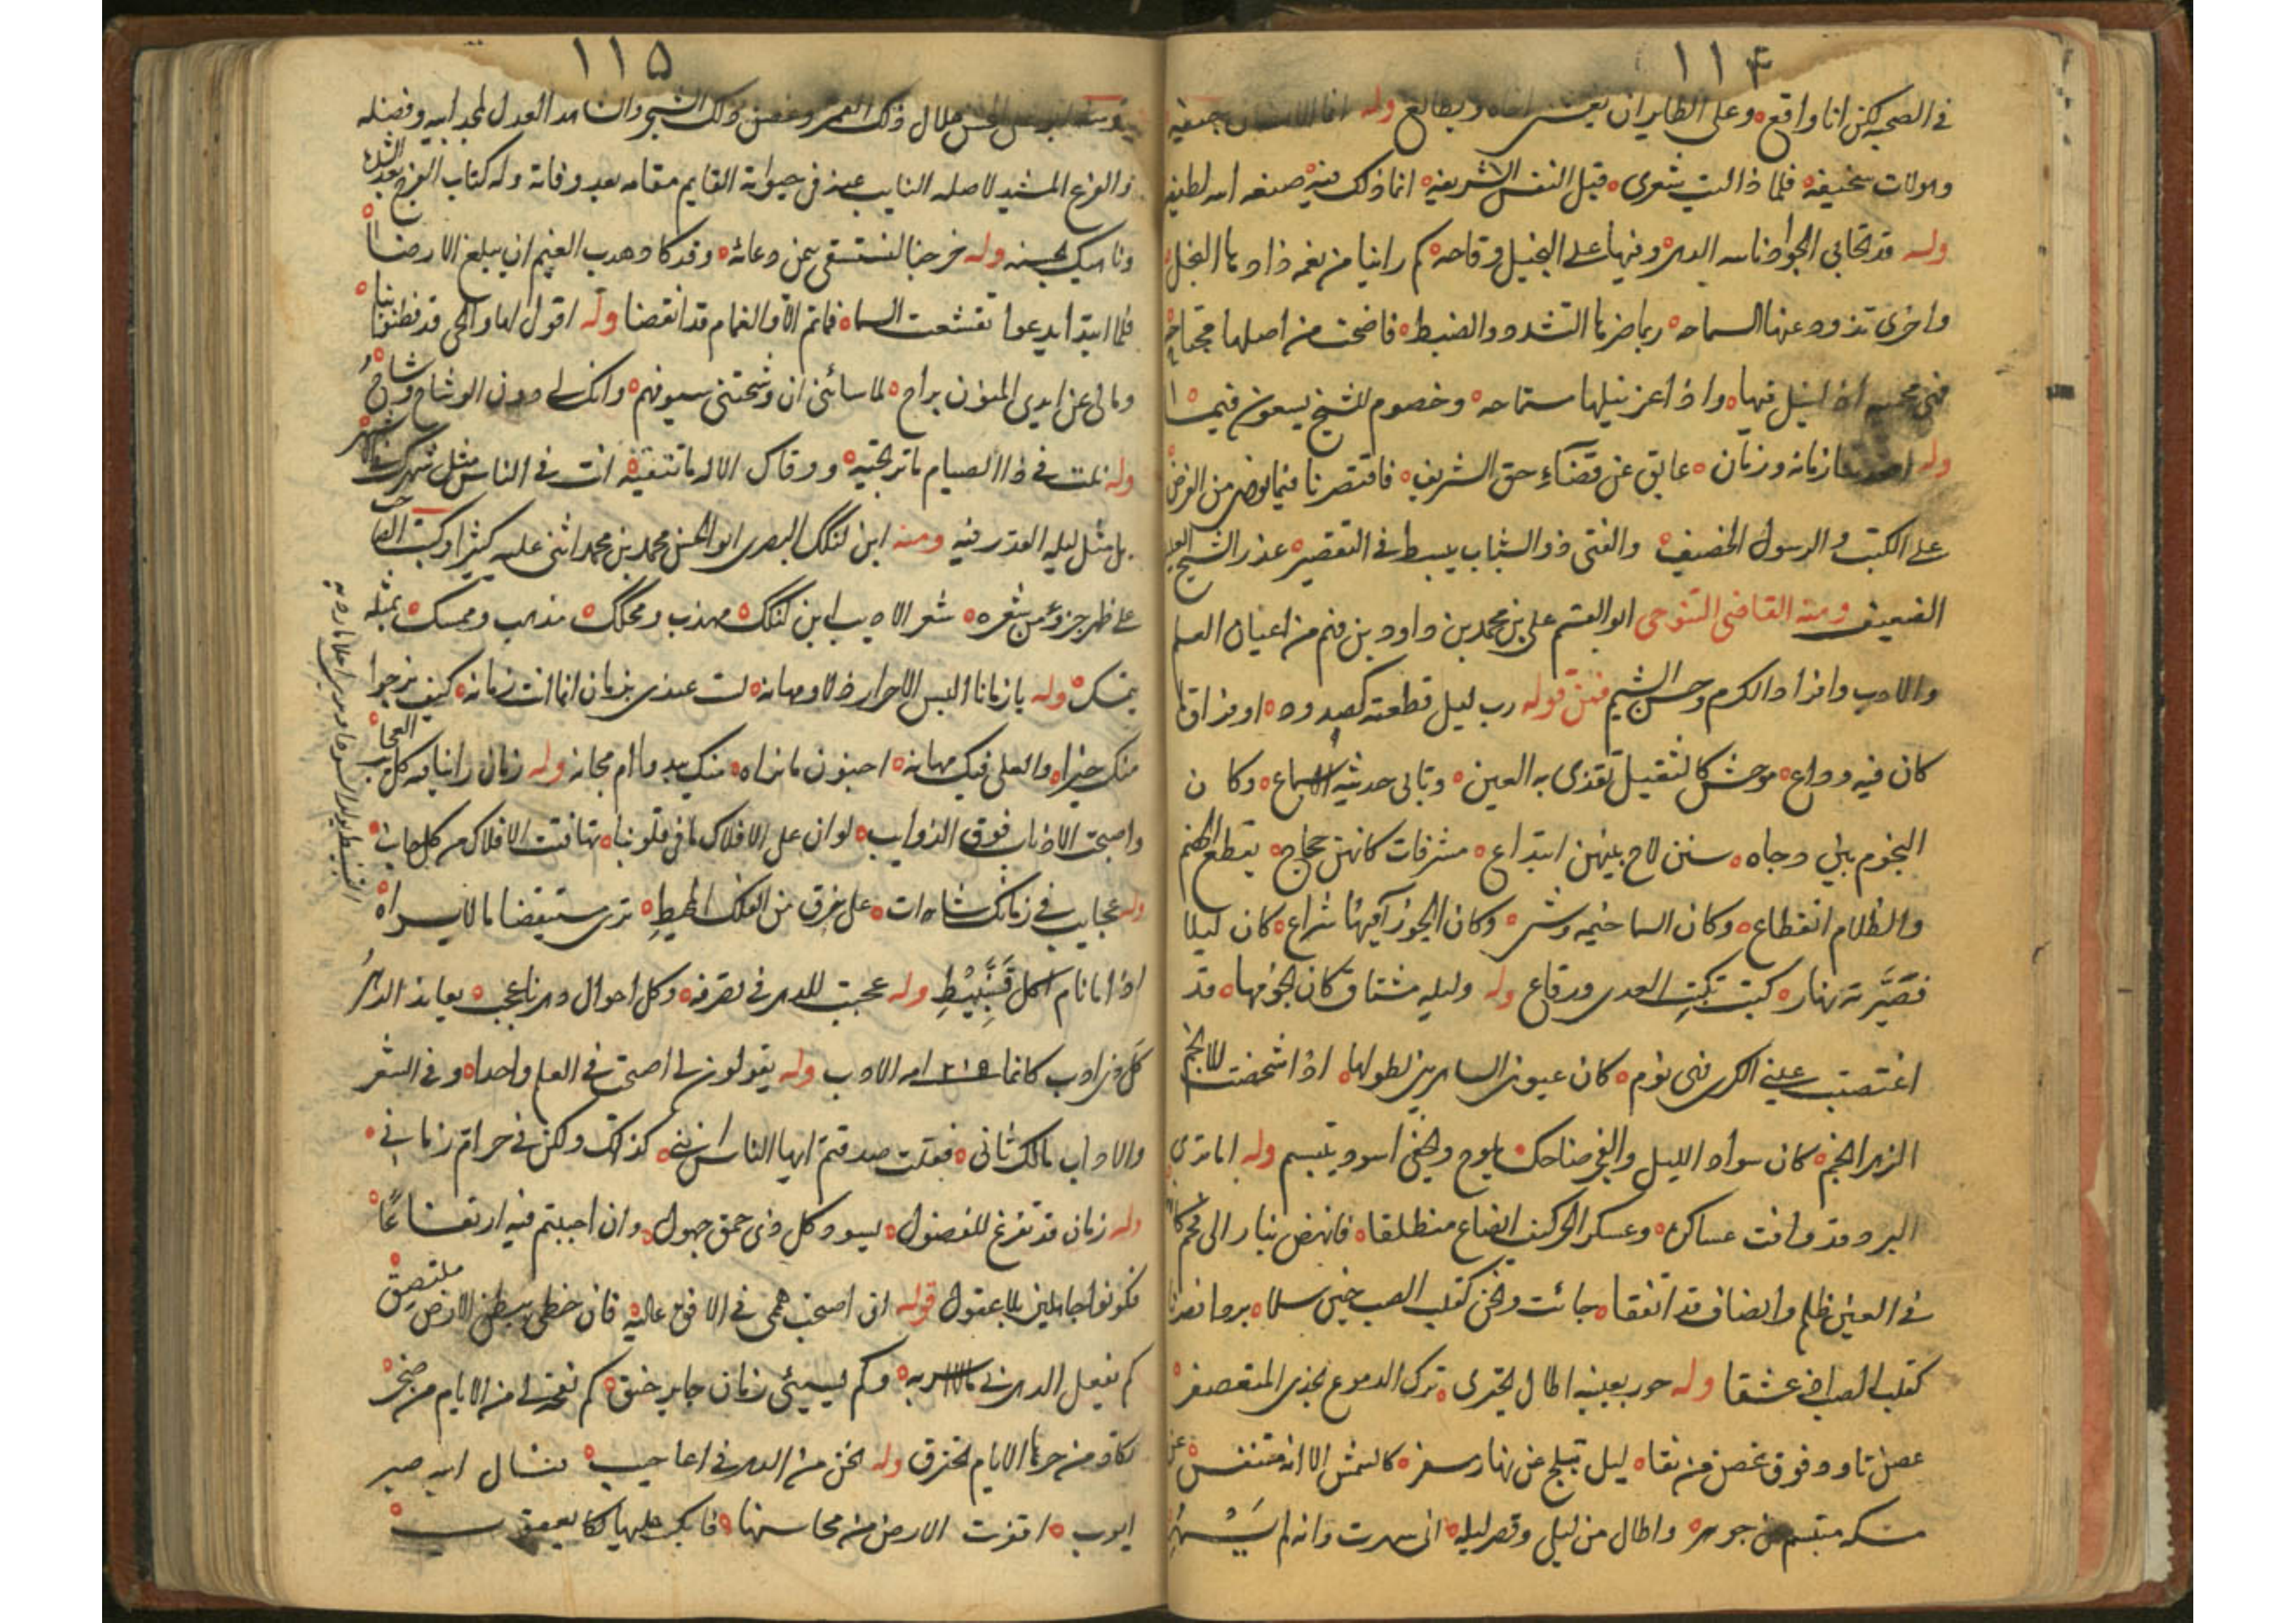 ١١٤
في الصحبة لكن انا واقع وعلى الطاير ان يغشى اخاه ويطالع وله انما الانسان جيفة
فلما ذا ليت شعرى قيل النفس الشريفة انما ذلك فيه صنعة الله لطيفه
وله قد تحابى الجواد ناسه الدهر ومنها على البخيل وقاحه كم راينا من نعمة ذادها البخل
واخرى تذود عنها السماحه ربما ضرنا التشدد والضبط فاضحت من اصلها مجتاحه
واذا عز نيلها مستماحه وخصوم للشيخ يسعون فيها
وله زمانه وزمان عايق عن قضاء حق الشريف فاقتصرنا فيما نوى من الفرض
على الكتب والرسول الخفيف والفتى ذو الشباب يبسط في التقصير عذر الشيخ العليل
الضعيف ومنه القاضى التنوخى ابو القسم على بن محمد بن داود بن فهم من اعيان العلم
والادب وافراد الكرم وحسن الشيم فمن قوله رب ليل قطعته كصدود او فراق ما
كان فيه وداع موحش كالثقيل تقذى به العين وتابى حديثه الاسماع وكان
النجوم بين دجاه سنن لاح بينهن ابتداع مشرقات كانهن حجاج يقطع الخصم
والظلام انقطاع وكان السما خيمه وشى وكان الجوزآ فيها شراع كان ليلا
فصيرته نهار كبت تكبت العدى ورقاع وله وليله مشتاق كان نجومها قد
اغتصبت عينى الكرى فهى نوم كان عيون الساهرين لطولها اذا شخصت للانجم
الزهر انجم كان سواد الليل والفجر ضاحك يلوح ويخفى اسود يتبسم وله اما ترى
البرد قد وافت عساكره وعسكر الحر كيف انصاع منطلقا فانهض بنار الى فحم كانهما
في العين ظلم وانصاف قد اتفقا جائت ونحن كقلب الصب حين سلا بردا فصرنا
كقلب الصب اذ عشقا وله حور بعينيه اطال تحيرى ترك الدموع بخدى المتعصفر
غصن تاود فوق غصن من نقا ليل تبلج عن نهار مسفر كالشمس الا انه متنفس عن
مسكه متبسم عن جوهر واطال من ليلى وقصر ليله انى سهرت وانه لم يسهر
١١٥
هلال ذلك القمر وغصن ذلك الشجر والشاهد العدل لمجد ابيه وفضله
والفرع المشيد لاصله النايب عنه في حيوته القايم مقامه بعد وفاته وله كتاب الفرج بعد الشده
وناهيك بحسنه وله خرجنا لنستسقى بيمن دعائه وقد كاد هدب الغيم ان يبلغ الارضا
فلما ابتدا يدعوا تقشعت السما فما تم الا والغمام قد انفضا وله اقول لها والحى قد فطنوا بنا
ومالى عن ايدى المنون براح لما سائنى ان وشحتنى سيوفهم وانك لى دون الوشاح وشاح
وله نلت في ذا الصيام ما ترتجيه ووقاك الاله ما تتقيه انت في الناس مثل شهرك في الاشهر
بل مثل ليله القدر فيه ومنه ابن لنكك البصرى ابو الحسن محمد بن محمد اثنى عليه كثيرا وكتب الصاحب
على ظهر جزؤ من شعره شعر الاديب ابن لنكك مهذب ومحكك مذهب وممسك بمثله
يتمسك وله يا زمانا البس الاحرار ذلا ومهانه لست عندى بزمان انما انت زمانه كيف نرجوا
منك خيرا والعلى فيك مهانه اجنون ما نراه منك يبدوا ام مجانه وله زمان راينا فيه كل العجايب
واصبحت الاذناب فوق الذوايب لو ان على الافلاك ما في قلوبنا تهافتت الافلاك من كل جانب
وله عجايب في زمانك شاهدات على خرق من الفلك المحيط ترى مستيقضا ما لا يراه
اذا ما نام اكل قنبيط وله عجبت للدهر في تصرفه وكل احوال دهرنا عجب يعاند الدهر
كل ذى ادب كانما امه الادب وله يقولون لى اصبحت في العلم واحدا وفى الشعر
والاداب مالك ثانى فقلت صدقتم ايها الناس اننى كذلك ولكن في حرام زمانى
وله زمان قد تفرغ للفضول يسود كل ذى حمق جهول وان احببتم فيه ارتفاعًا
فكونوا جاهلين بلا عقول قوله انى اصبحت هممى في الافق عاليه فان حظى ببطن الارض ملتصق
كم يفعل الدهر بى ما لا اسر به وكم يسيئى زمان جاير حنق كم نفحة لى من الايام من ضجر
تكاد من حرها الايام تحترق وله نحن من الدهر في اعاجيب نسال الله صبر
ايوب اقفرت الارض من محاسنها فابك عليها بكا يعقوب